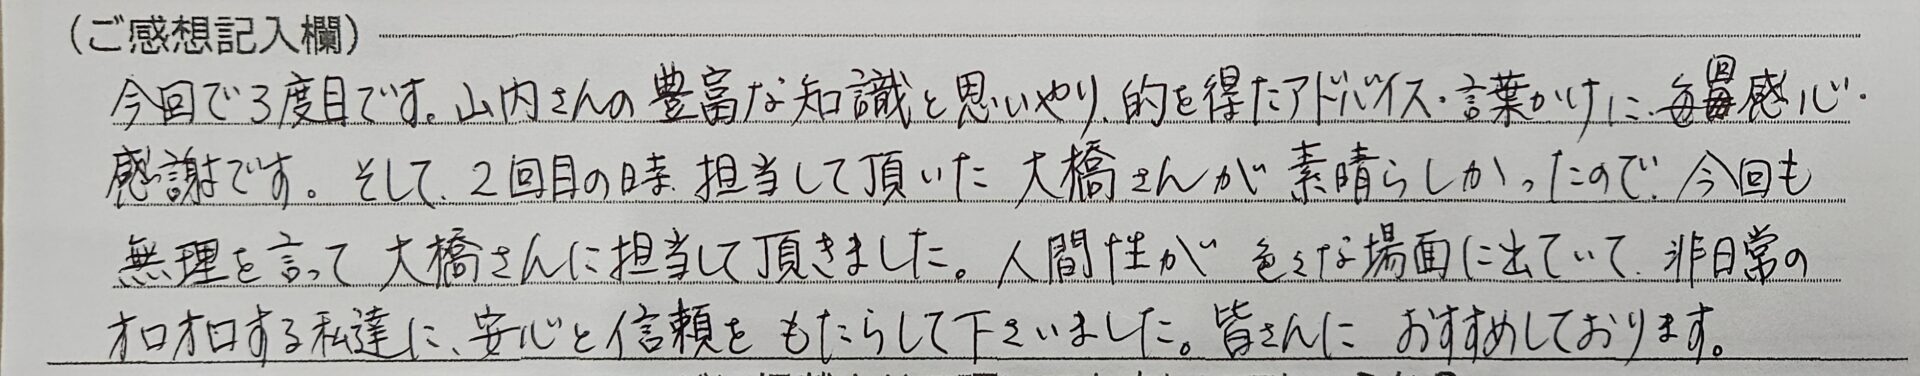 (ご感想記入欄)
今回で3度目です。山内さんの豊富な知識と思いやり、的を得たアドバイス・言葉かけに、毎回感心・
感謝です。そして、2回目の時、担当して頂いた大橋さんが素晴らしかったので、今回も
無理を言って大橋さんに担当して頂きました。人間性が色々な場面に出ていて、非日常の
オロオロする私達に、安心と信頼をもたらして下さいました。皆さんにおすすめしております。